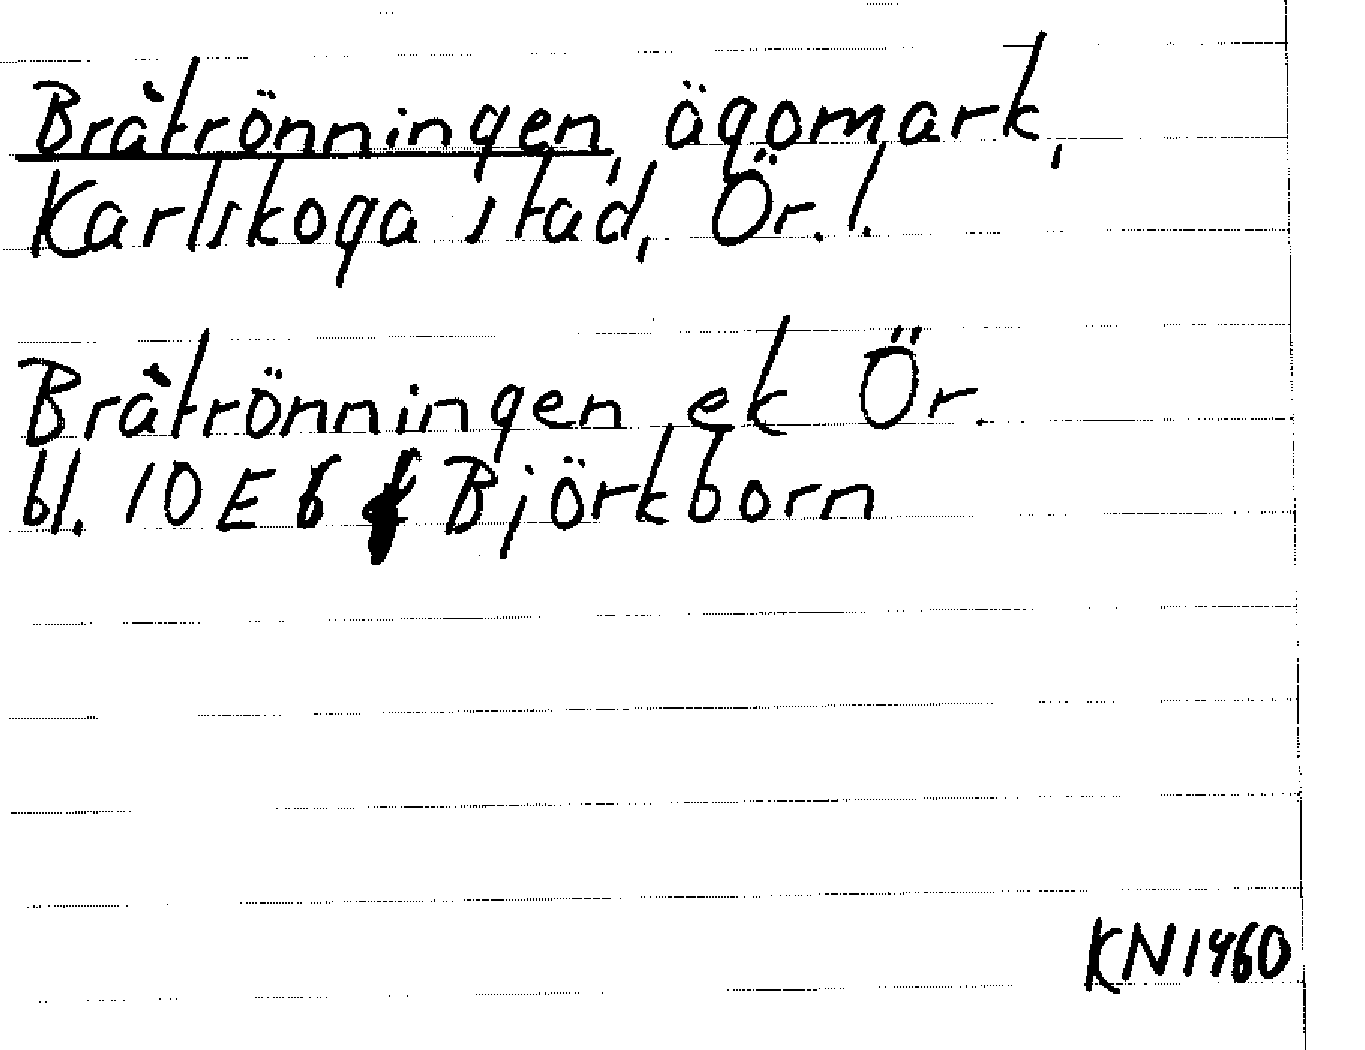 Bråtrönningen, ägomark,
Karlskoga stad, Ör. l.
Bråtrönningen ek Ör.
bl. 10E6f Björkborn
KN1960